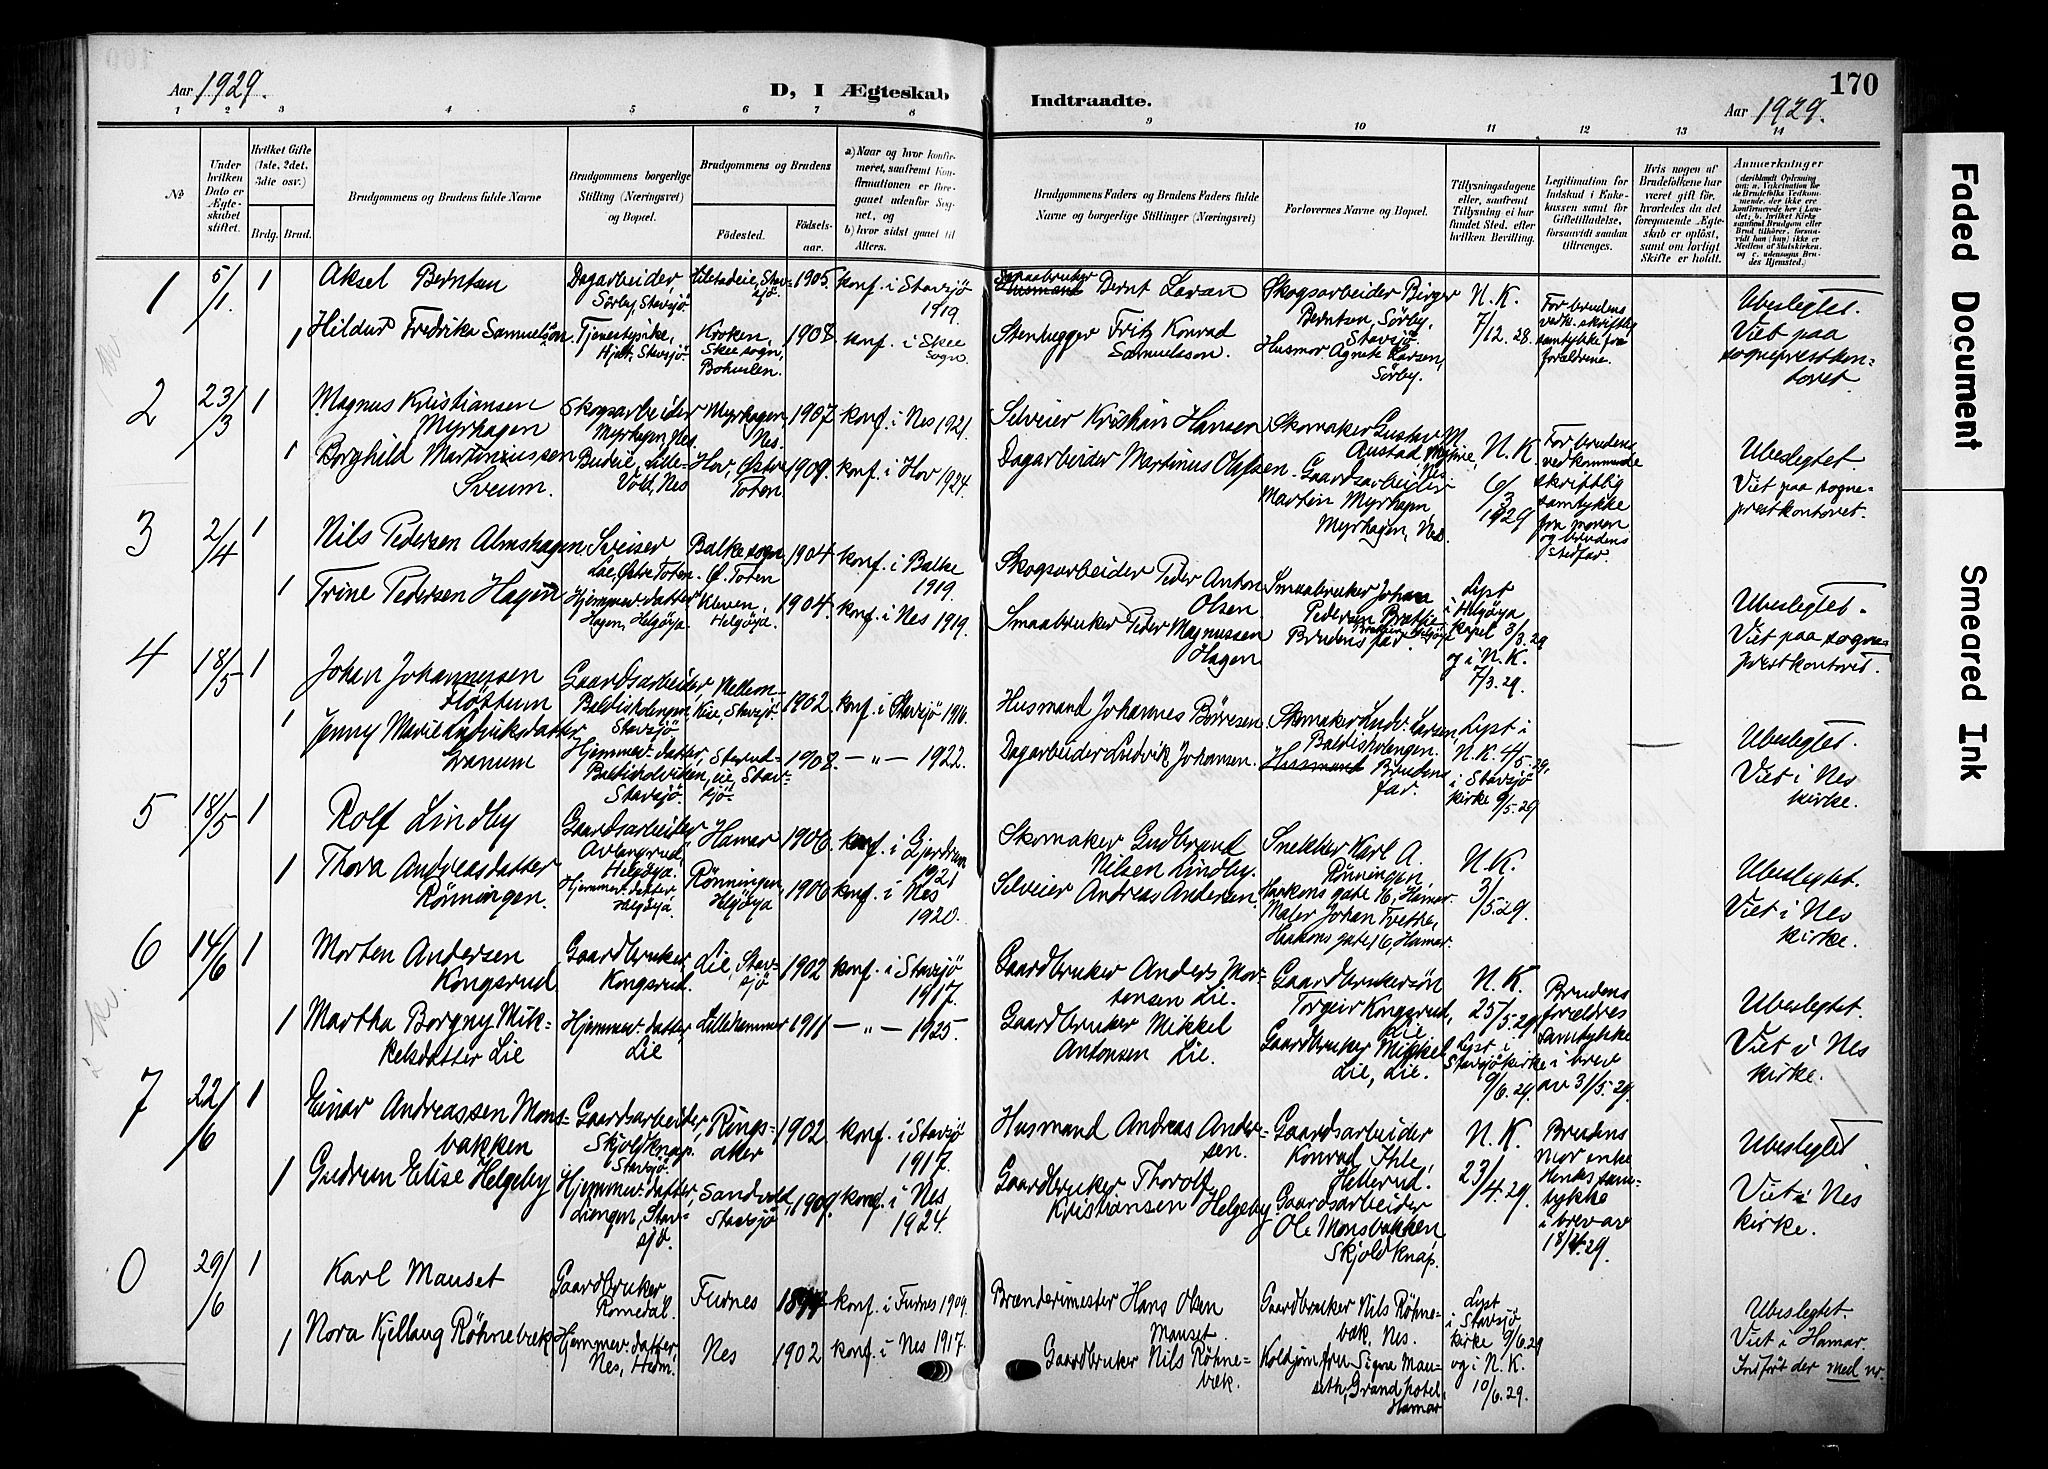 Aar 1929.
D, I Ægteskab
Indtraadte.
170
Aar 1929.
1 2 3 4 5 6 7 8 9 10 11 12 13 14
№
Under hvilken Dato er Ægteskabet stiftet.
Hvilket Gifte (1ste, 2det, 3die osv.)
Brdg. Brud.
Brudgommens og Brudens fulde Navne
Brudgommens borgerlige Stilling (Næringsvei) og Bopæl.
Brudgommens og Brudens
Fødested.
Fødselsaar.
a) Naar og hvor konfirmeret, saafremt Konfirmationen er foregaaet udenfor Sognet, og
b) hvor sidst gaaet til Alters.
Brudgommens Faders og Brudens Faders fulde Navne og borgerlige Stillinger (Næringsvei)
Forlovernes Navne og Bopæl.
Tillysningsdagene eller, saafremt Tillysning ei har fundet Sted, efter hvilken Bevilling.
Legitimation for Indskud i Enkekassen samt for Giftetilladelse, forsaavidt saadan tiltrænges.
Hvis nogen af Brudefolkene har været gift før, hvorledes da det foregaaende Ægteskab er opløst, samt om lovligt Skifte er holdt.
Anmerkninger
1 5/1 1 Aksel Berntsen Dagarbeider, Sörby, Stavsjö 1905 konf. i Stavsjö 1919. Smaabruker Husmand Bernt Larsen Skogsarbeider Birger Berntsen, Sörby, Stavsjö N. K. 7/12.28. For brudens vedk. skriftlig samtykke fra foreldrene. Ubeslegtet. Viet paa sogneprestkontoret
1 Hildur Fredrika Samuelson Tjenestepike, Hjelt, Stavsjö Kroken, Skee sogn, Bohuslen. 1908 konf. i Skee sogn. Stenhugger Fritz Konrad Samuelsson. Husmor Agnete Larsen, Sörby.
2 23/3 1 Magnus Kristiansen Myrhagen Skogsarbeider Myrhagen, Nes. Myrhagen Nes. 1907 konf. i Nes 1921. Selveier Kristian Hansen Skomaker Gustav M. Austad, Myhre, Nes N. K. 6/3 1929 For brudens vedkommende skriftlig samtykke fra moren og brudens stedfar. Ubeslegtet. Viet paa sogneprestkontoret.
1 Borghild Martinussen Sveum. Budeie, Lille-Vold, Nes Hov, Østre Toten 1909. konf. i Hov 1924. Dagarbeider Martinus Olssen. Gaardsarbeider Martin Myrhagen, Myrhagen, Nes.
3 2/4 1 Nils Pedersen Almshagen Sveiser Lie, Østre Toten. Balke sogn Ö. Toten 1904 konf. i Balke 1919. Skogsarbeider Peder Anton Olsen Smaabruker Johan Pedersen Brettin, Brettin, Helgöya Lyst i Helgöya kapel 3/3.29 og i N. K. 7/3.29. Ubeslegtet. Viet paa sogneprestkontoret.
1 Trine Pedersen Hagen Hjemmev. datter Hagen, Helgöya. Kleven, Helgöya. 1904. konf. i Nes 1919. Smaabruker Peder Magnussen Hagen Brudens far.
4 18/5 1 Johan Johannessen Fløttum Gaardsarbeider, Baldisholengen, Stavsjö Mellem-Kise, Stavsjö. 1902. konf. i Stavsjö 1916. Husmand Johannes Börresen Skomaker Ludv. Larsen, Baldisholengen. Lyst i N. K. 4/5.29. i Stavsjö kirke 9/5.29 Ubeslegtet. Viet i Nes kirke.
1 Jenny Marie Ludviksdatter Granum Hjemmev. datter, Baldisholviken, Stavsjö. Stavsjö. 1908. — " — 1922. Dagarbeider Ludvik Johansen. Husmand Brudens far.
5 18/5 1 Rolf Lindby Gaardsarbeider Avlangrud, Helgöya. Hamar 1906. konf. i Gjerdrum 1921 Skomaker Gudbrand Nilsen Lindby. Snekker Karl A. Rönningen Haakons gate 16, Hamar. N. K. 3/5.29. Ubeslegtet. Viet i Nes kirke.
1 Thora Andreasdatter Rönningen. Hjemmev. datter Helgöya. Rönningen, Helgöya 1900 konf. i Nes 1920. Selveier Andreas Andersen. Maler Johan Trette, Haakons gate 16, Hamar.
6 14/6 1 Morten Andersen Kongsrud. Gaardbruker Kongsrud. Lie, Stavsjö 1902 konf. i Stavsjö 1917. Gaardbruker Anders Mortensen Lie. Gaardbrukersön Torgeir Kongsrud, Lie N. K. 25/5.29. Lyst i Stavsjö kirke 9/6.29. Brudens forældres samtykke i brev av 31/5.29. Ubeslegtet. Viet i Nes kirke.
1 Martha Borgny Mikkelsdatter Lie Hjemmev. datter, Lie Lillehammer 1911 — " — 1925. Gaardbruker Mikkel Antonsen Lie. Gaardbruker Mikkel Lie, Lie.
7 22/6 1 Einar Andreassen Monsbakken Gaardsarbeider, Skjoldknap. Stavsjö. Ringsaker 1902 konf. i Stavsjö 1917. Husmand Andreas Andersen. Gaardsarbeider Konrad Ihle, Hellerud. N. K. 23/4.29. Brudens mor enke Henks samtykke i brev av 18/4.29. Ubeslegtet. Viet i Nes kirke.
1 Gudrun Elise Helgeby Hjemmev. datter, Liengen, Stavsjö. Sandvold, Stavsjö 1909. konf. i Nes 1924. Gaardbruker Thorolf Kristiansen Helgeby Gaardsarbeider Ole Monsbakken, Skjoldknap.
0 29/6 1 Karl Mauset Gaardbruker Romedal. Furnes konf. i Furnes 1909. Brænderimester Hans Olsen Mauset. Gaardbruker Nils Röhnebæk, Nes. Lyst i Stavsjö kirke 9/6.29 og i N. K. 10/6.29. Ubeslegtet. Viet i Hamar. Indfört der med nr.
1 Nora Kjellaug Röhnebæk Hjemmev. datter, Nes, Hedm. Nes 1902 konf. i Nes 1917. Gaardbruker Nils Röhnebæk. Signe Mauseth, Grand hotel, Hamar
Faded Document
Smeared Ink